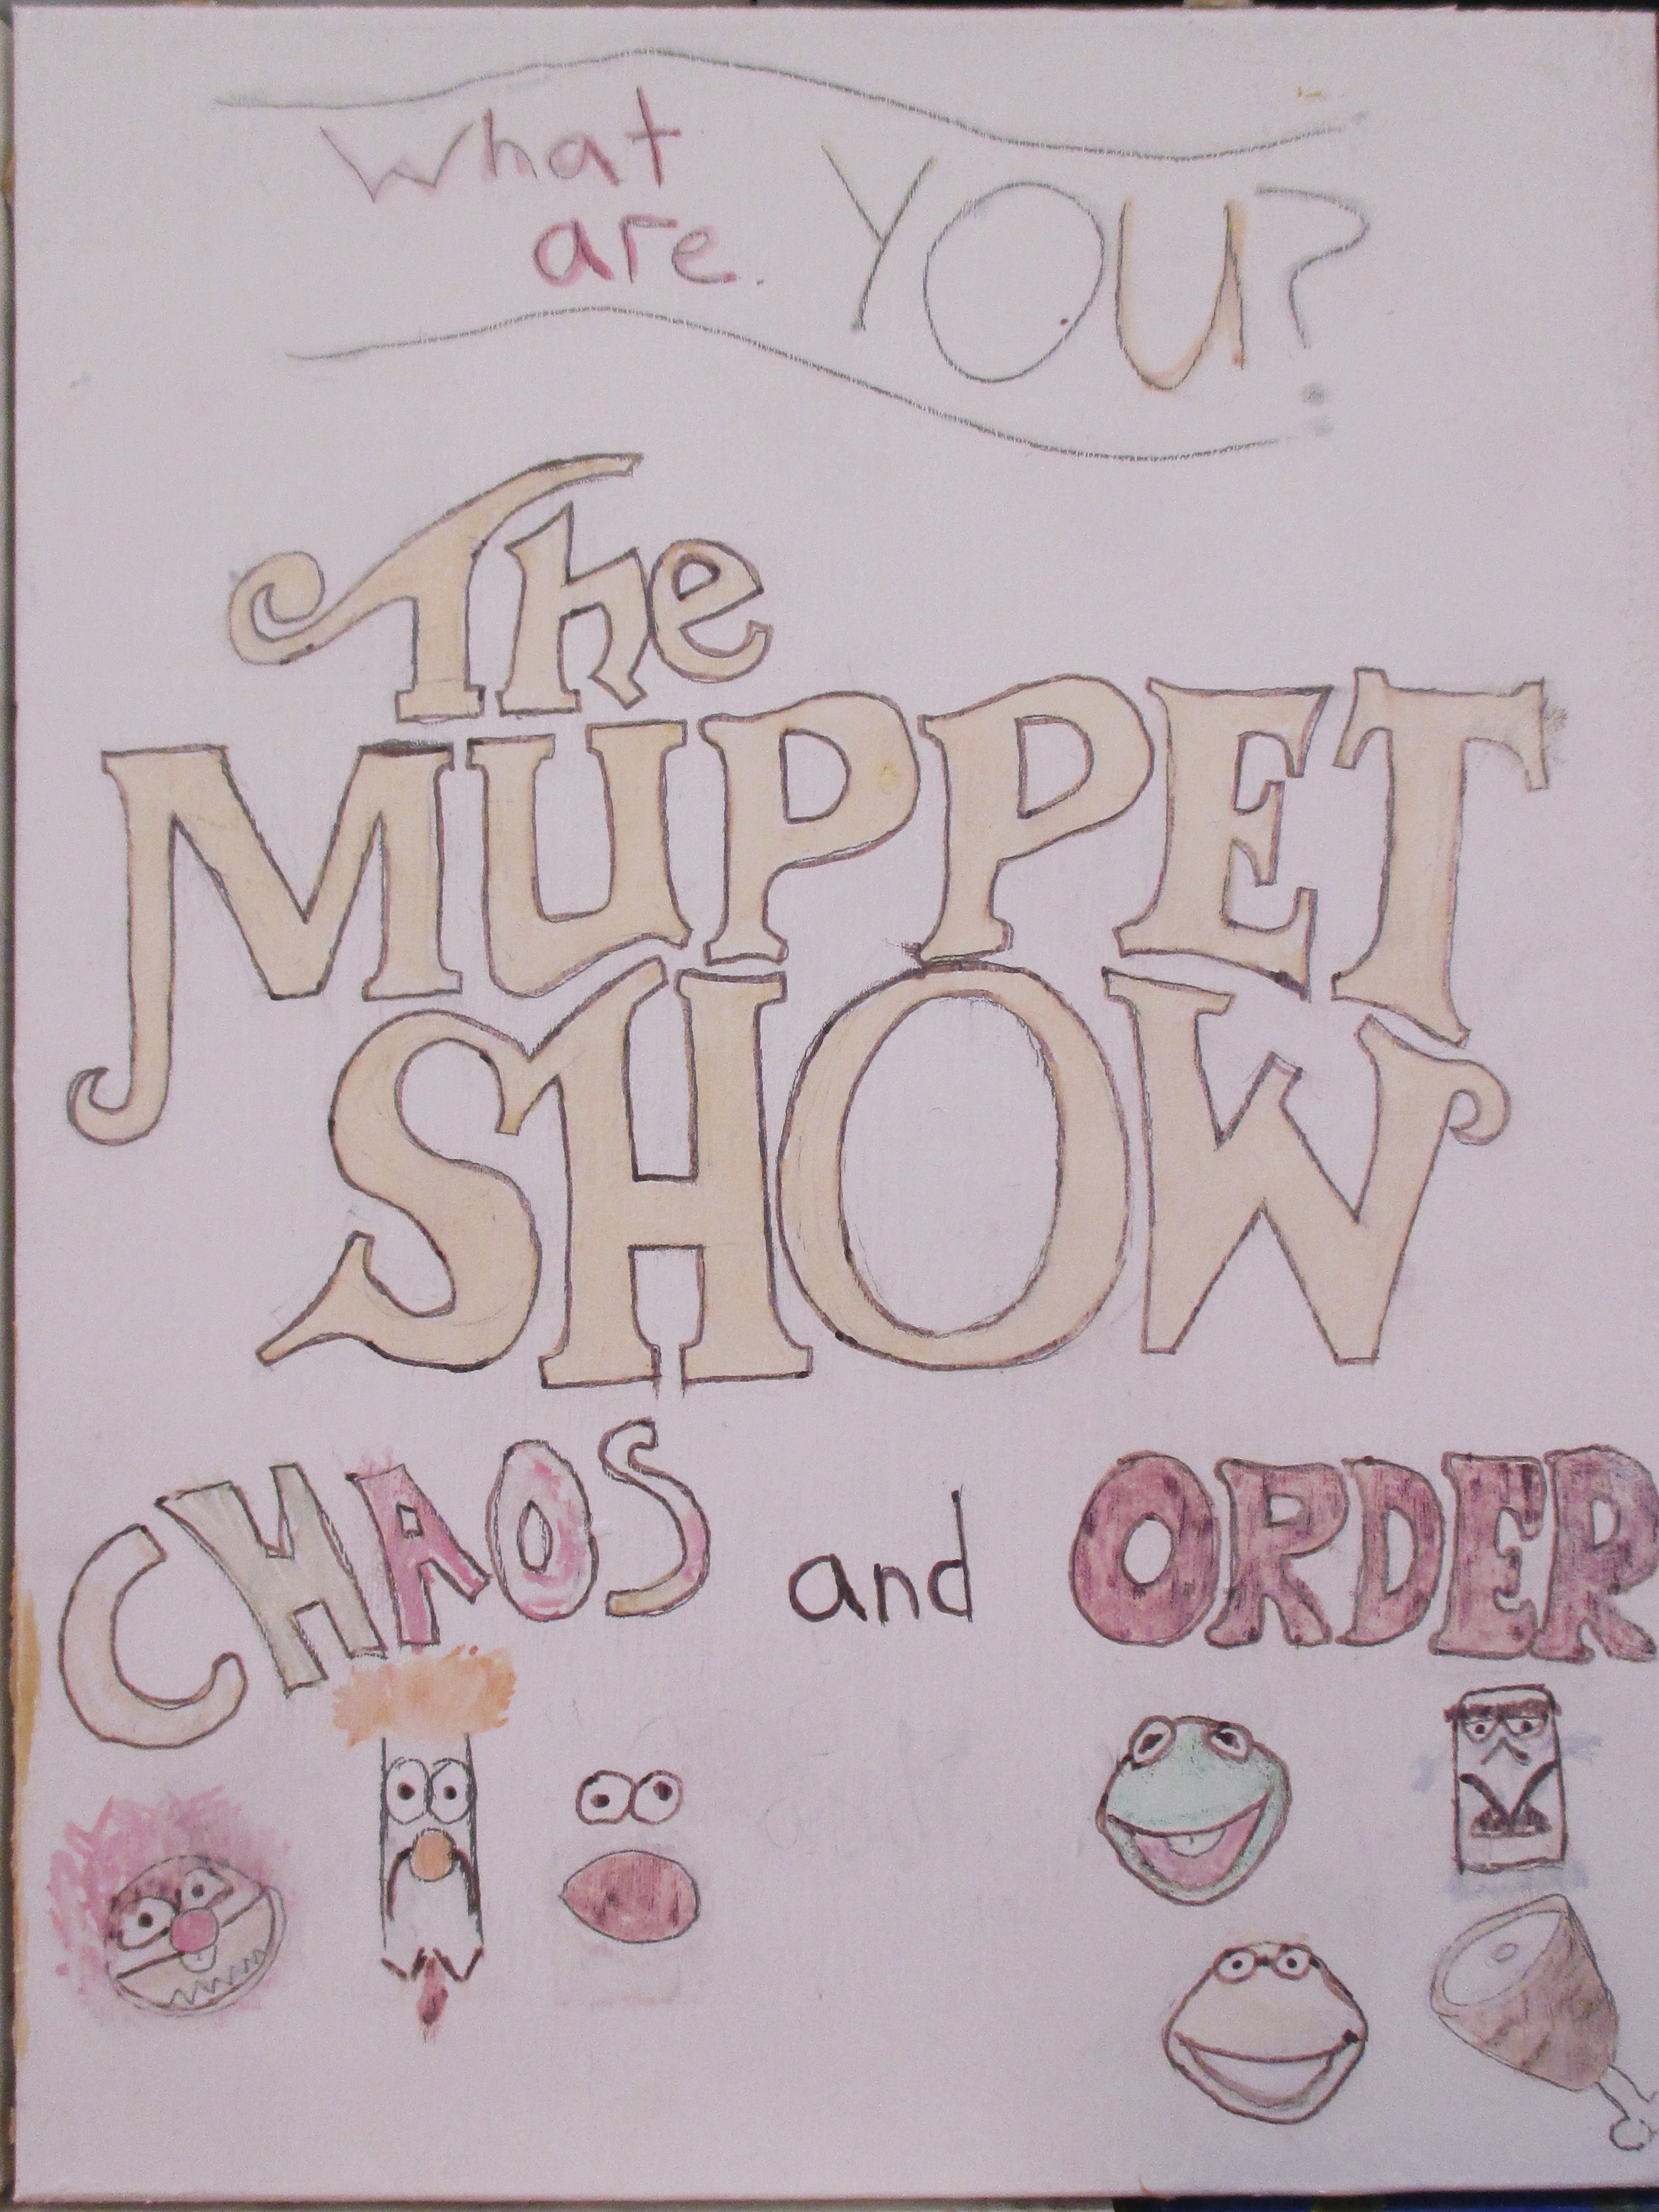 What
are YOU?
The
MUPPET
SHOW
CHAOS and ORDER